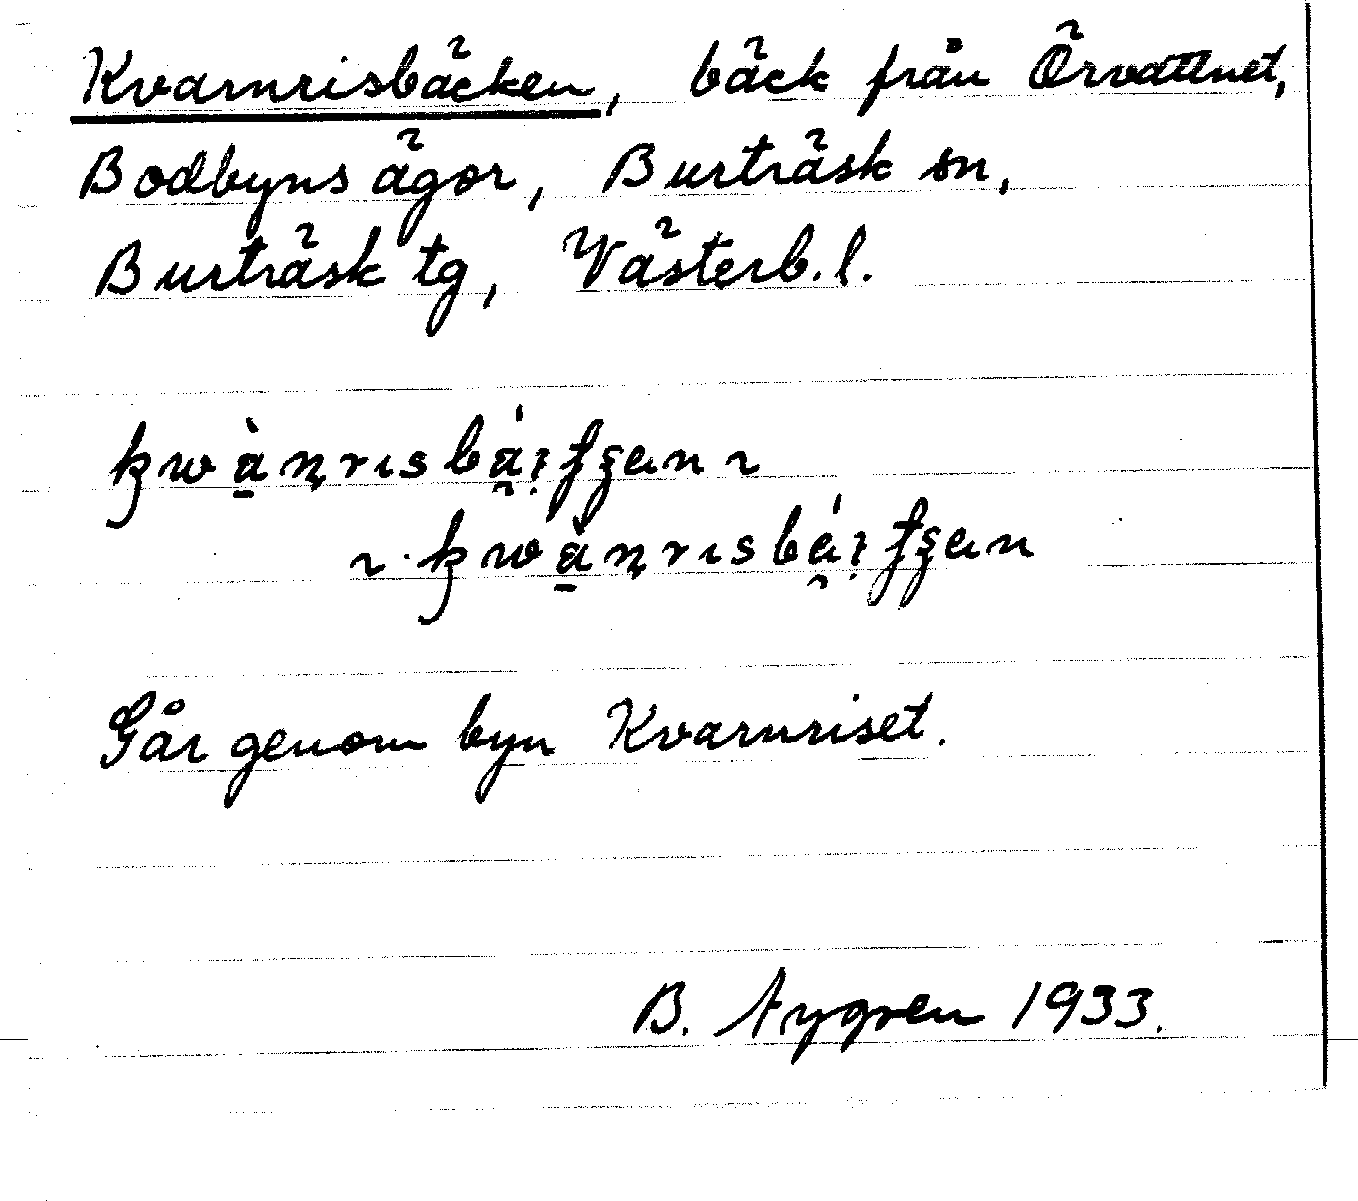 Kvarnrisbäcken, bäck från Örvattnet,
Bodbyns ägor, Burträsk sn,
Burträsk tg, Västerb. l.
Går genom byn Kvarnriset.
B. Nygren 1933.